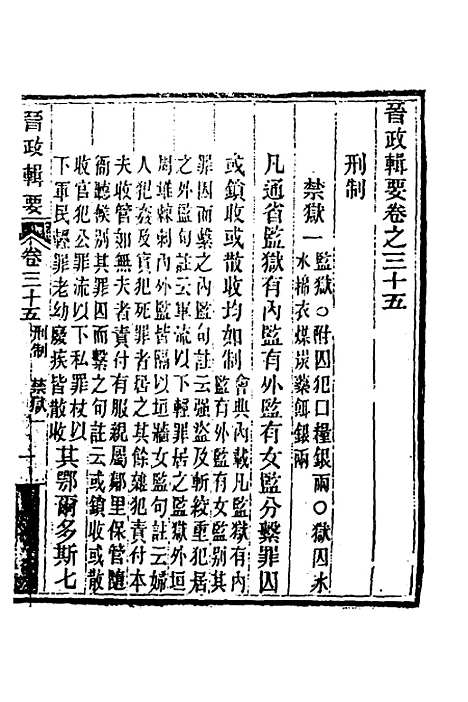 晉政輯要卷之三十五
刑制
禁獄一
監獄○附囚犯口糧銀兩○獄囚氷
水棉衣煤炭藥餌銀兩
凡通省監獄有內監有外監有女監分繫罪囚
或鎖收或散收均如制
會典內載凡監獄有內
監有外監有女監各別其
罪囚而繫之內監句註云強盜及斬絞重犯居
之外監句註云軍流以下輕罪居之監獄外垣
周堆棘刺內外監皆隔以垣牆女監句註云婦
人犯姦及實犯死罪者居之其餘雜犯責付本
夫收管如無夫者責付有服親屬鄰里保管隨
衙聽候別其罪囚而繫之句註云或鎖收或散
收官犯公罪流以下私罪杖以
下軍民輕罪老幼廢疾皆散收
其鄂爾多斯七
晉政輯要
卷三十五
刑制
禁獄一
一